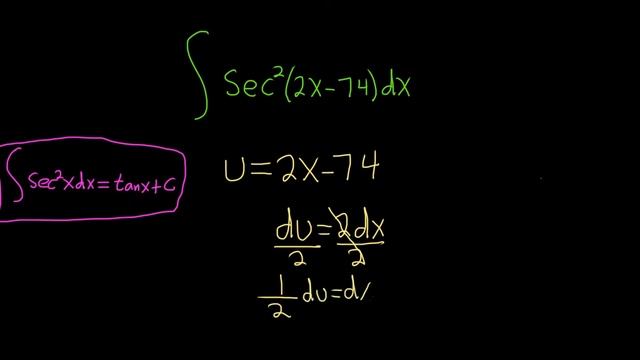 ∫ Sec²(2x-74)dx
∫ Sec²xdx = tanx+C
U = 2x-74
du/2 = 2dx/2
1/2 du = d